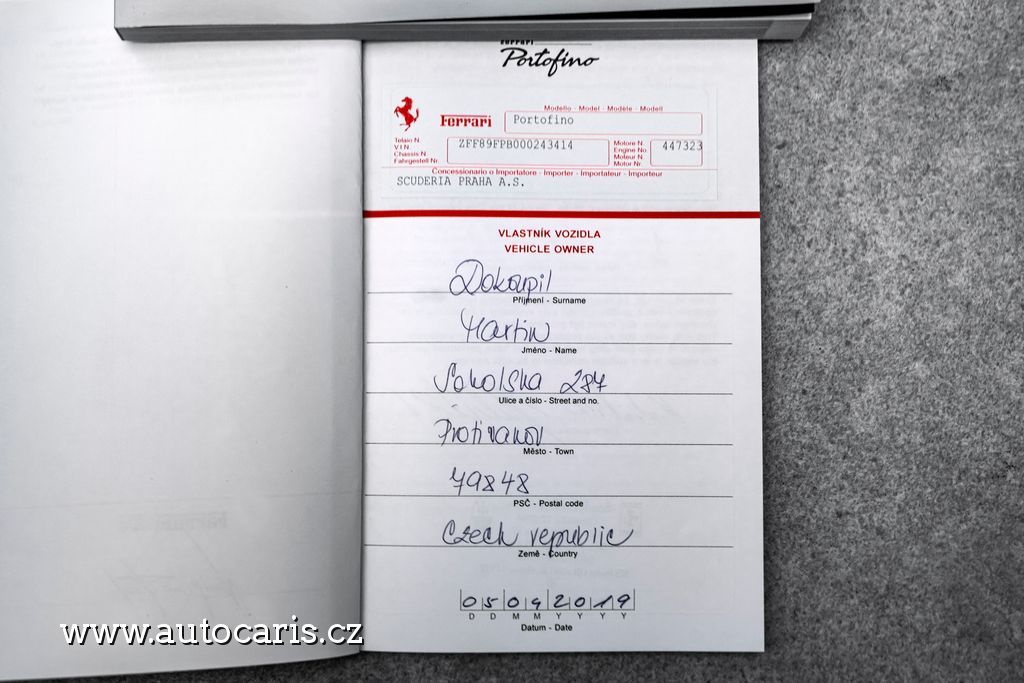 Ferrari
Portofino
Modello - Model - Modèle - Modell
Ferrari
Portofino
Telaio N.
V.I.N.
Chassis N.
Fahrgestell Nr.
ZFF89FPB000243414
Motore N.
Engine No
Moteur N.
Motor Nr.
447323
Concessionario o Importatore - Importer - Importateur - Importeur
SCUDERIA PRAHA A.S.
VLASTNÍK VOZIDLA
VEHICLE OWNER
Dokoupil
Příjmení - Surname
Martin
Jméno - Name
Sokolska 287
Ulice a číslo - Street and no.
Protivanov
Město - Town
79848
PSČ - Postal code
Czech republic
Země - Country
05092019
D D M M Y Y Y Y
Datum - Date
www.autocaris.cz